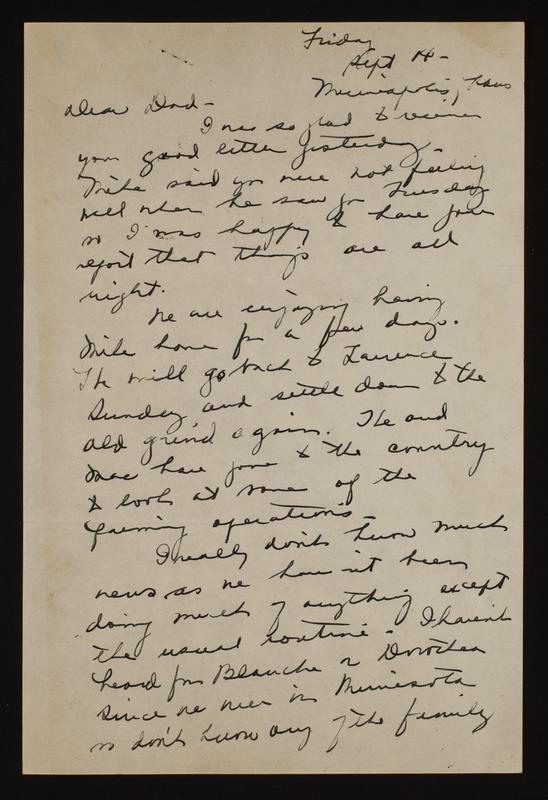 Friday
Sept 14-
Minneapolis, Kans
Dear Dad-
I was so glad to receive
your good letter yesterday.
Mike said you were not feeling
well when he saw you Tuesday
so I was happy to have your
report that things are all
right.
We are enjoying having
Mike home for a few days.
He will go back to Lawrence
Sunday and settle down to the
old grind again. He and
Mac have gone to the country
to look at some of the
farming operations.
I really don't know much
news as we haven't been
doing much of anything except
the usual routine. I haven't
heard from Blanche or Dorothea
since we were in Minnesota
so don't know any of the family